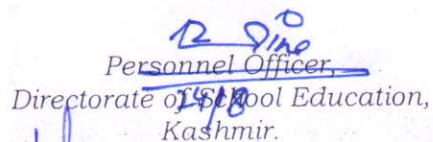 Personnel Officer,
Directorate of School Education,
24/8
Kashmir.